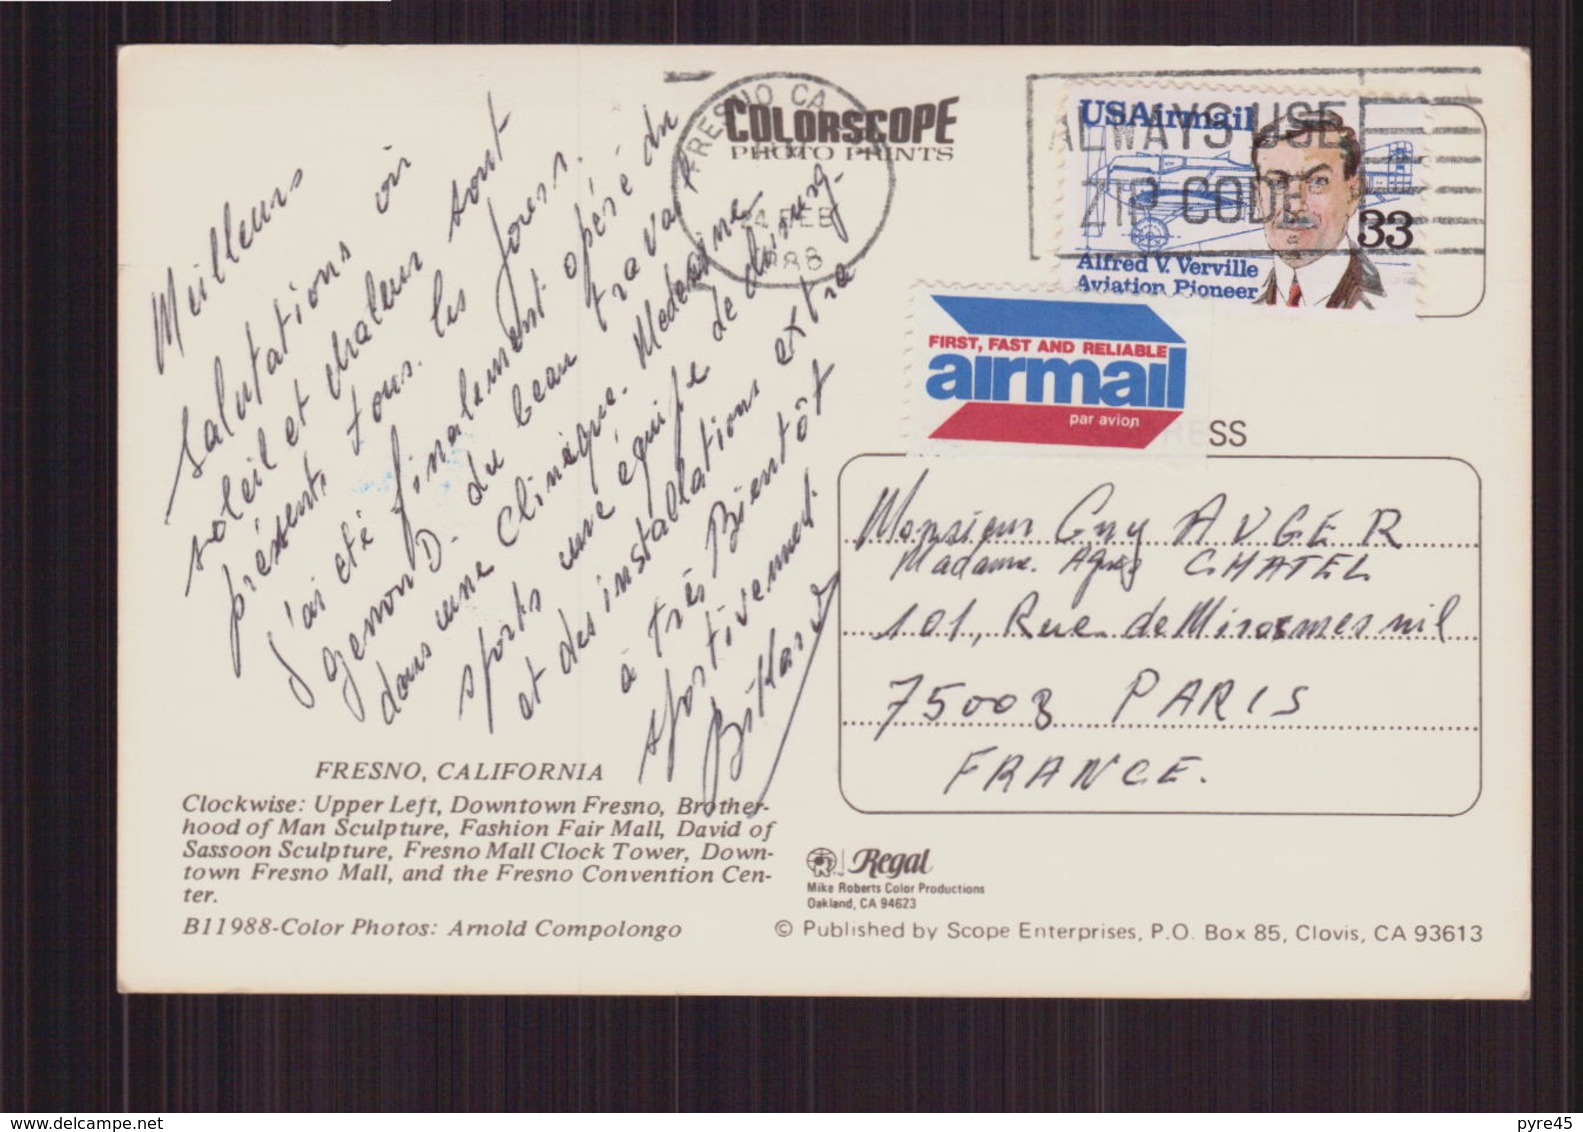 Meilleurs
salutations où
soleil et chaleur sont
présents tous les jours.
J'ai été finalement opéré du
genou D. du beau travail
dans une Clinique. Medecine
sports une équipe de chirurg.
et des installations extra
à très Bientôt
sportivement
FRESNO CA
24 FEB
1988
COLORSCOPE
PHOTO PRINTS
ALWAYS USE
ZIP CODE
USAirmail
33
Alfred V. Verville
Aviation Pioneer
FIRST, FAST AND RELIABLE
airmail
par avion
SS
Monsieur Guy AUGER
Madame. Agnès CHATEL
101, Rue de Miromesnil
75008 PARIS
FRANCE.
FRESNO, CALIFORNIA
Clockwise: Upper Left, Downtown Fresno, Brother-
hood of Man Sculpture, Fashion Fair Mall, David of
Sassoon Sculpture, Fresno Mall Clock Tower, Down-
town Fresno Mall, and the Fresno Convention Cen-
ter.
B11988-Color Photos: Arnold Compolongo
Regal
Mike Roberts Color Productions
Oakland, CA 94623
© Published by Scope Enterprises, P.O. Box 85, Clovis, CA 93613
www.delcampe.net
pyre45